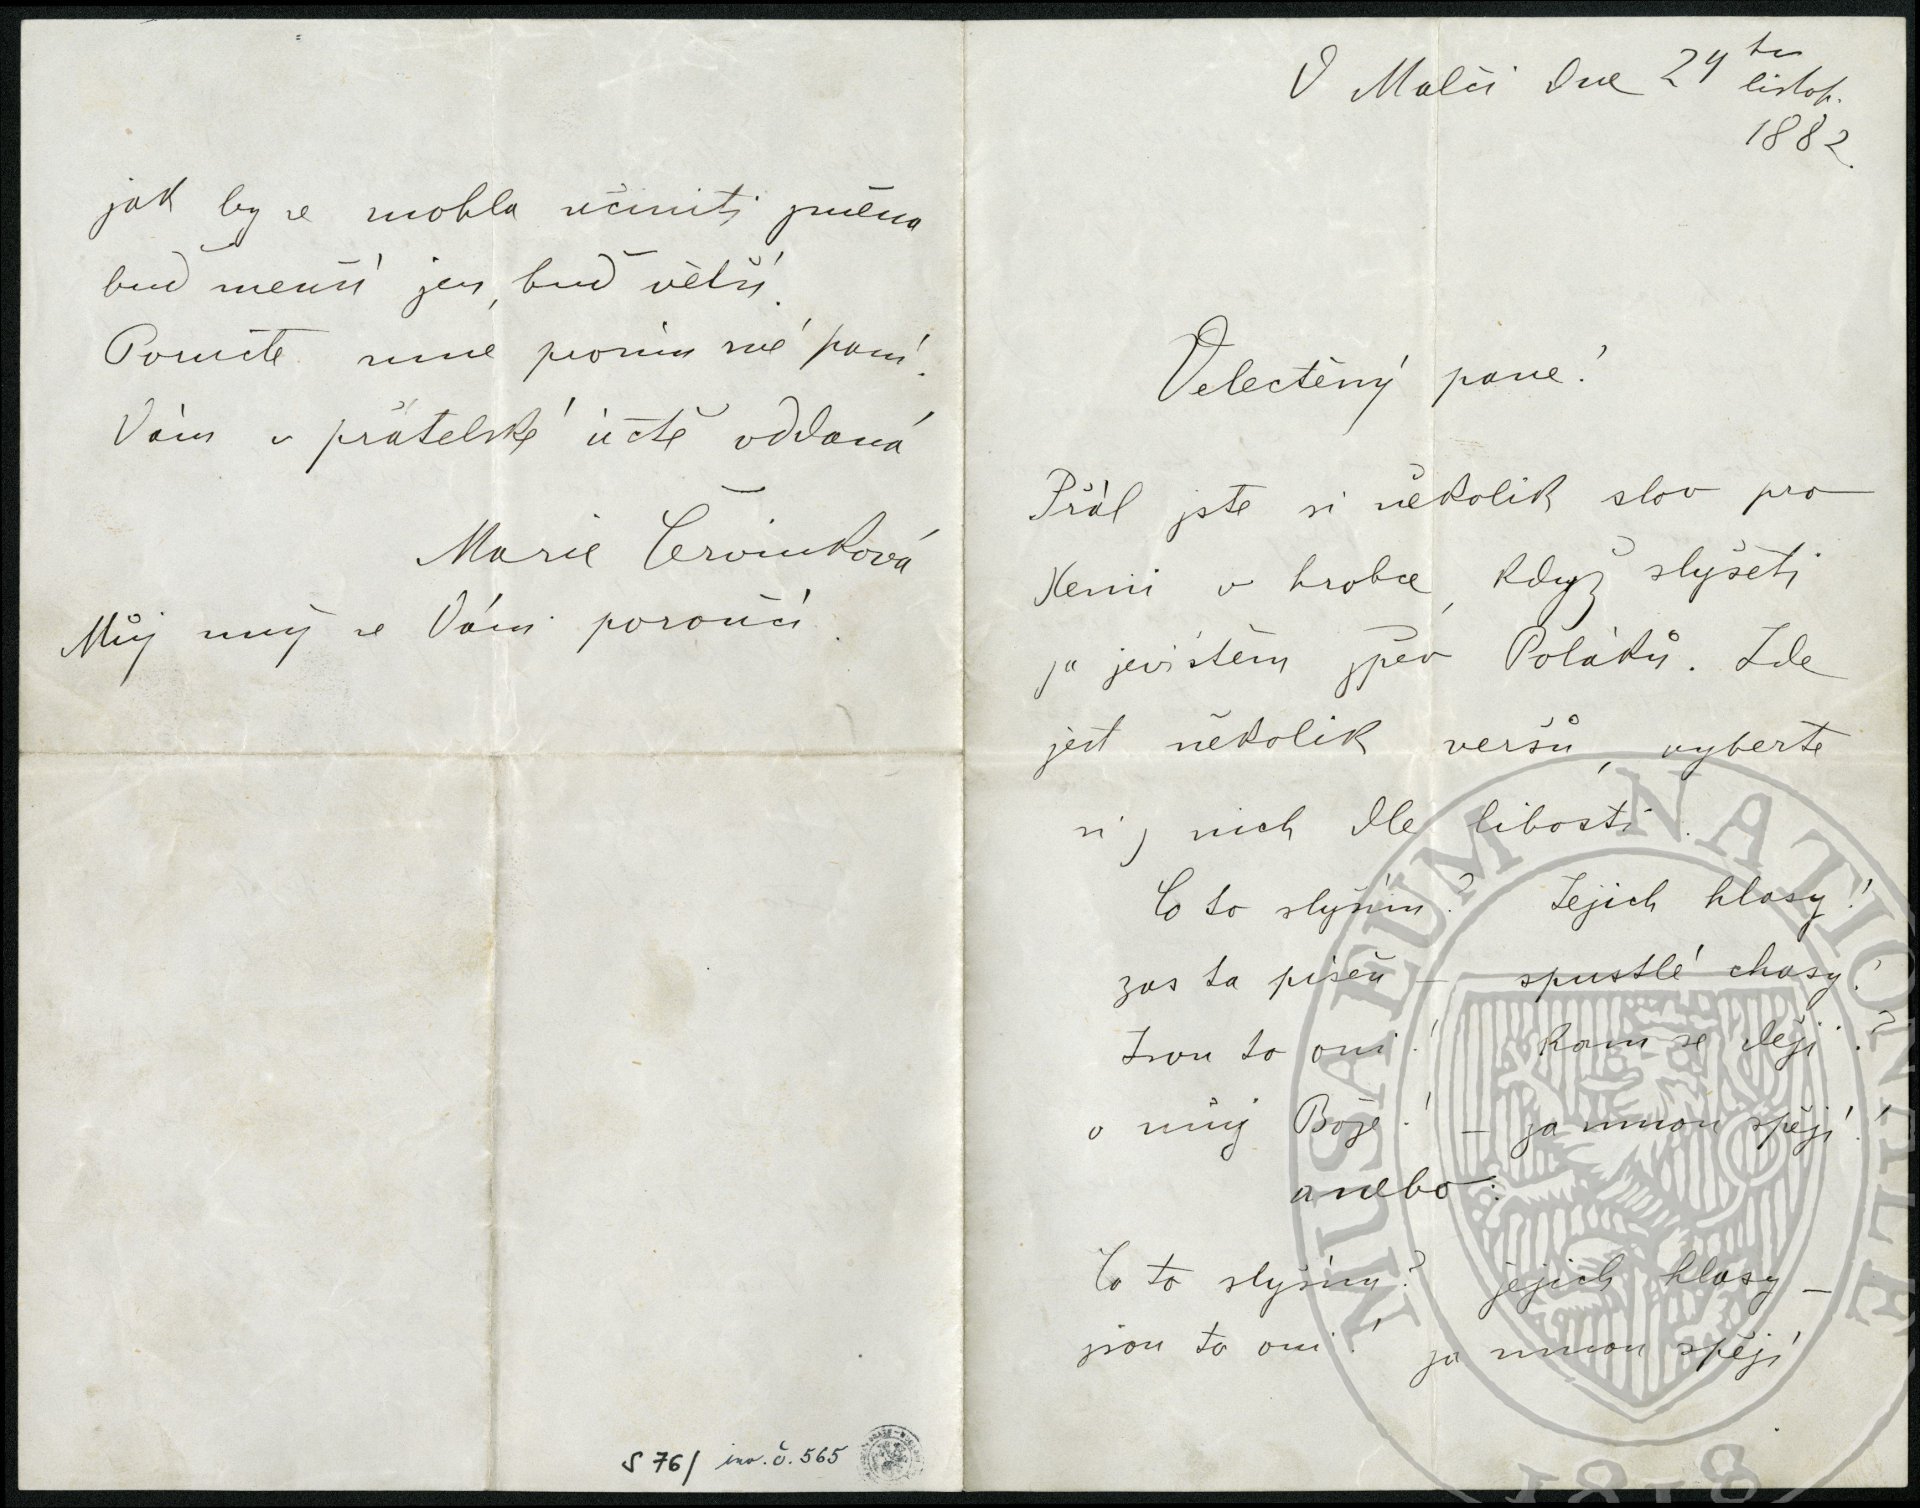 V Malči dne 24ho
listop.
1882.
Velectěný pane!
Přál jste si několik slov pro
Xenii v hrobce, když slyšeti
za jevištěm zpěv Poláků. Zde
jest několik veršů, vyberte
si z nich dle libosti.
Co to slyším? Jejich hlasy!
zas ta píseň — spustlé chasy!
Jsou to oni! kam se dějí?
o můj Bože! — za mnou spějí!
anebo:
Co to slyším? jejich hlasy —
jsou to oni! za mnou spějí
jak by se mohla učiniti změna
buď menší jen, buď větší.
Poručte mne prosím své paní.
Vám v přátelské úctě oddaná
Marie Červinková
Můj muž se Vám poroučí.
S 76/ inv. č. 565
MUSAEUM NATIONALE
1818